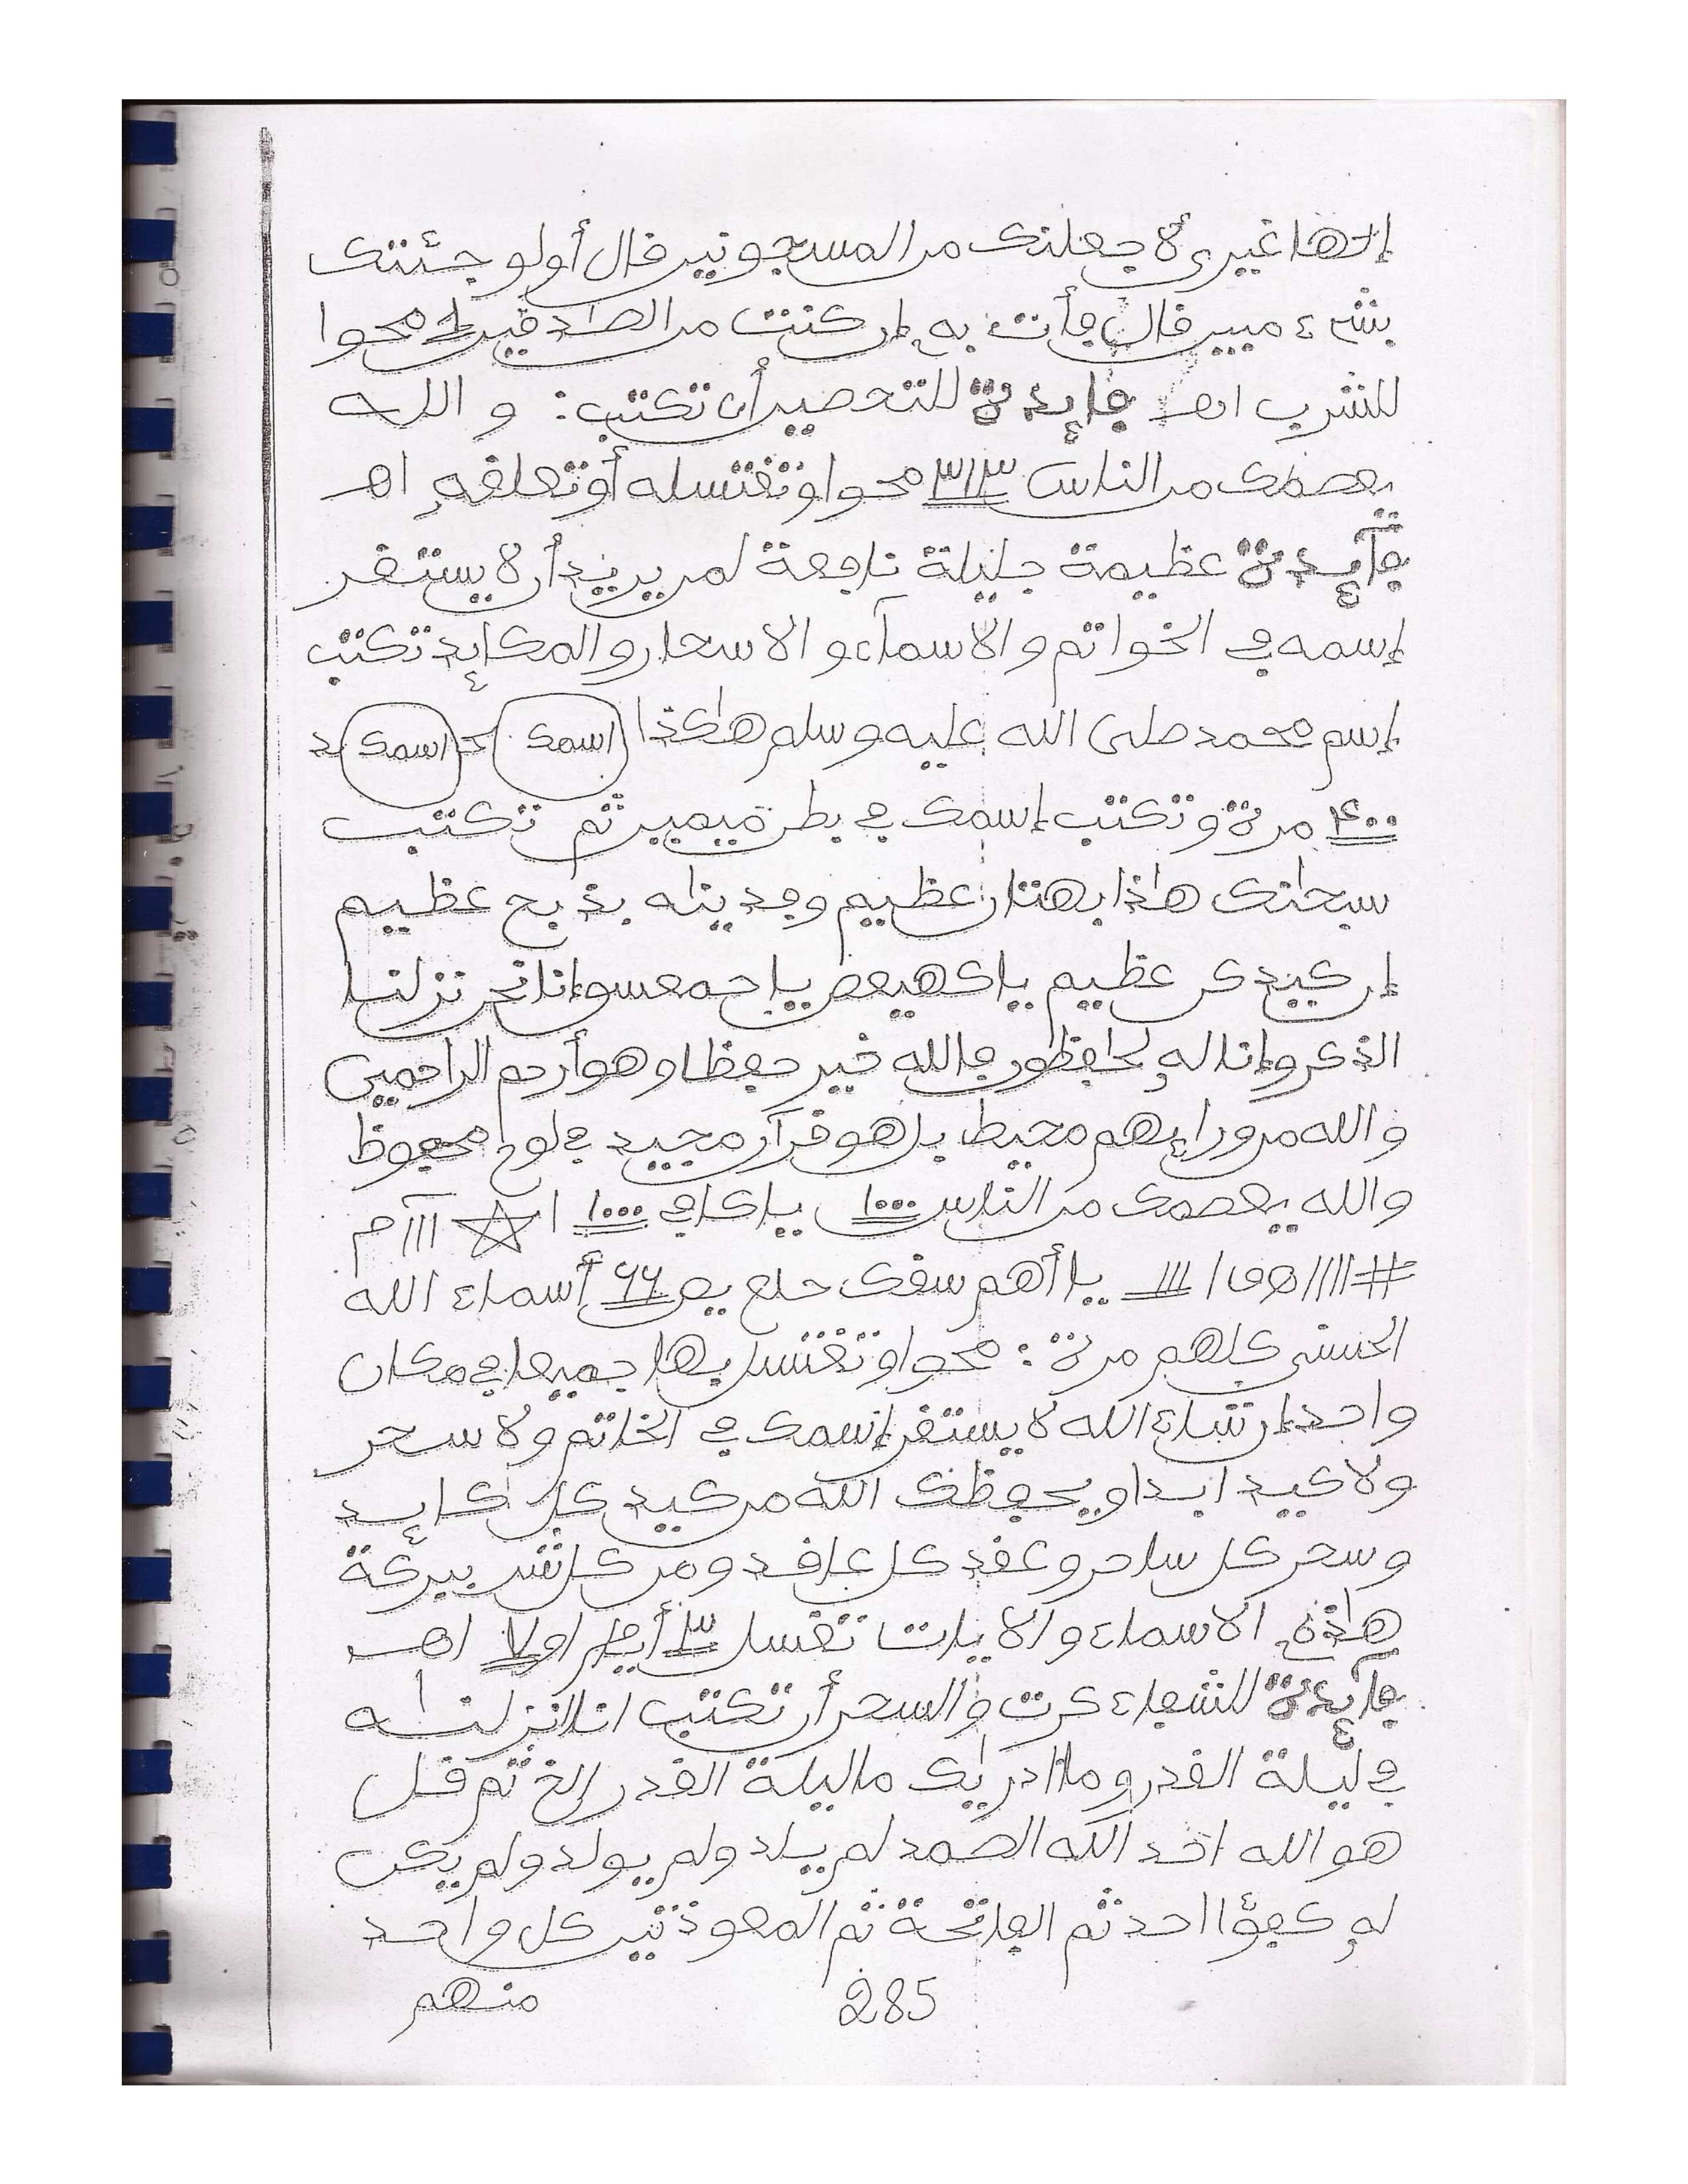 إلها غيرى لأجعلنك من المسجونين قال أولو جئتك
بشىء مبين قال فأت به إن كنت من الصدقين محوا
للشرب اهـ فايدة للتحصين أن تكتب: والله
يعصمك من الناس ٣١٣ محوا وتغتسله أو تعلقه اهـ
فآيدة عظيمة جليلة نافعة لمن يريد أن لا يستقر
إسمه في الخواتم والاسمآء والاسحار والمكايد تكتب
إسم محمد صلى الله عليه وسلم هاكذا اسمك حـ اسمك د
٤٠٠ مرة وتكتب إسمك في بطن ميمين ثم تكتب
سبحنك هاذا بهتان عظيم وفديناه بذبح عظيم
إن كيدكن عظيم ياكهيعص ياحمعسق وإنا نحن نزلنا
الذكر وإنا له لحافظون فالله خير حفظا وهو أرحم الراحمين
والله من ورايهم محيط بل هو قرآن مجيد في لوح محفوظ
والله يعصمك من الناس ١٠٠٠ ياكافي ١٠٠٠ ا ☆ ااا م
# //// ااا يا أهم سقك حلع يص ٦٦ أسماء الله
الحسنى كلهم مرة: محوا وتغتسل بها جميعا في مكان
واحد إن شاء الله لا يستقر إسمك في الخاتم ولا سحر
ولا كيد ابدا ويحفظك الله من كيد كل كايد
وسحر كل ساحر وعقد كل عاقد ومن كل شر ببركة
هاذه الاسماء والايات تغسل ٣ أيام او ٧ اهـ
فآيدة للشفاء كرت والسحر أن تكتب انا انزلناه
في ليلة القدر وما ادريك ما ليلة القدر إلخ ثم قل
هو الله احد الله الصمد لم يلد ولم يولد ولم يكن
له كفؤا احد ثم الفاتحة ثم المعوذتين كل واحد
285 منهم